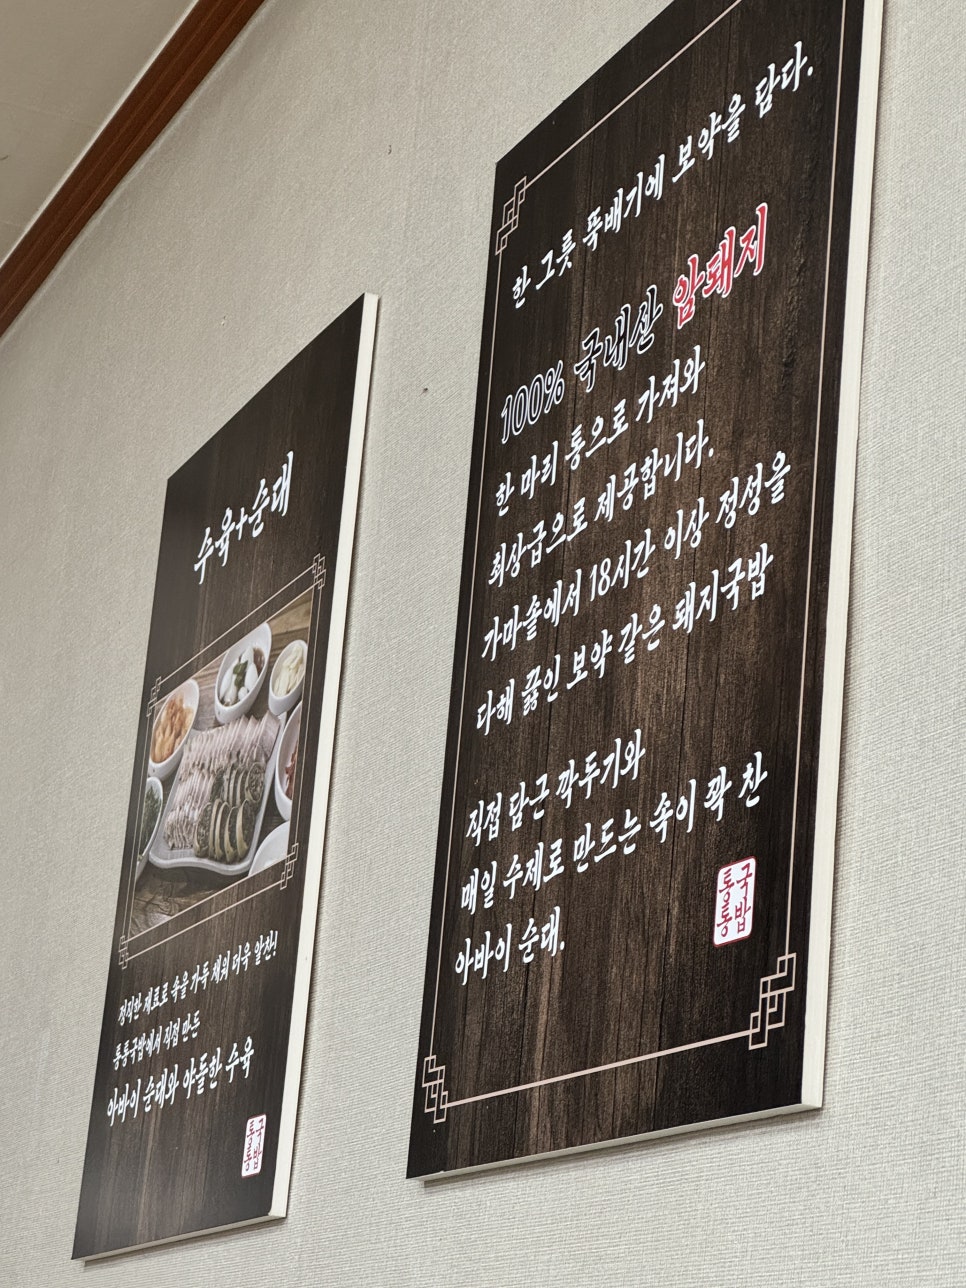 수육+순대
정직한 재료로 속을 가득 채워 더욱 알찬!
통통국밥에서 직접 만든
아바이 순대와 야들한 수육
통통
국밥
한 그릇 뚝배기에 보약을 담다.
100% 국내산 암퇘지
한 마리 통으로 가져와
최상급으로 제공합니다.
가마솥에서 18시간 이상 정성을
다해 끓인 보약 같은 돼지국밥
직접 담근 깍두기와
매일 수제로 만드는 속이 꽉 찬
아바이 순대.
통통
국밥